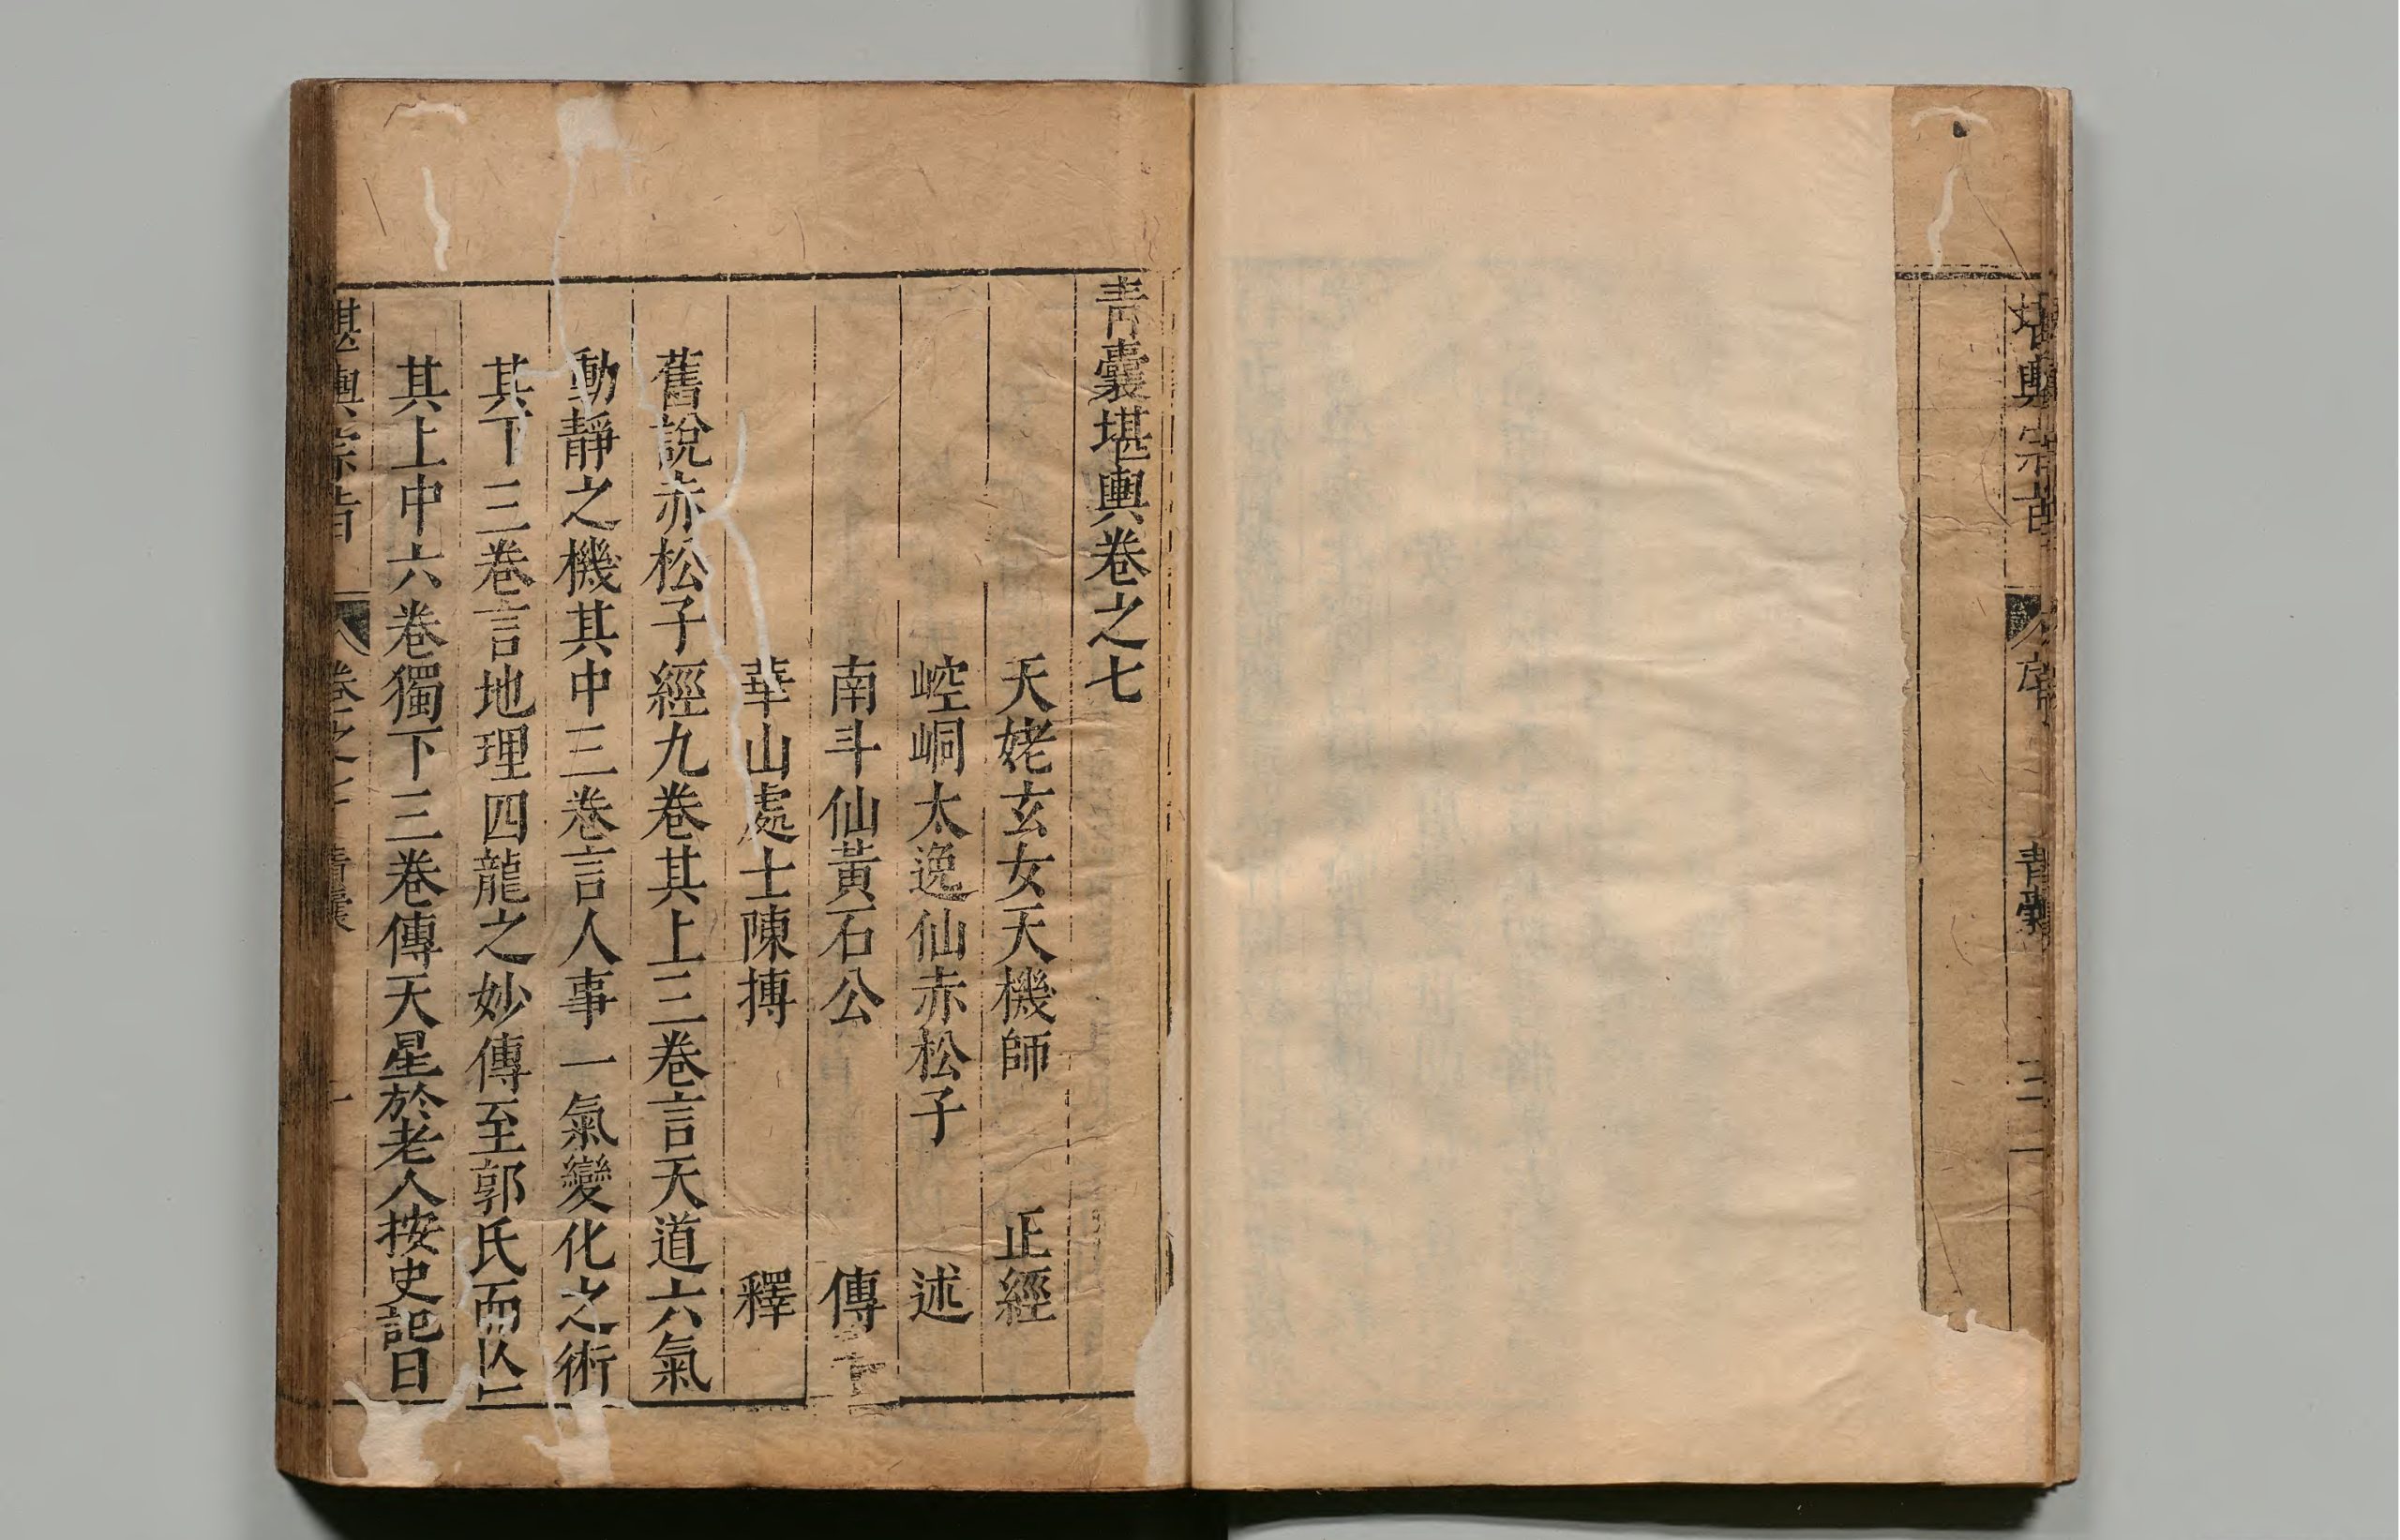 堪輿宗旨
青囊
三
青囊堪輿卷之七
天姥玄女天機師 正經
崆峒太逸仙赤松子 述
南斗仙黃石公 傳
華山處士陳摶 釋
舊說赤松子經九卷其上三卷言天道六氣
動靜之機其中三卷言人事一氣變化之術
其下三卷言地理四龍之妙傳至郭氏而
其上中六卷獨下三卷傳天星於老人按史記曰
堪輿宗旨 卷之七 青囊 一